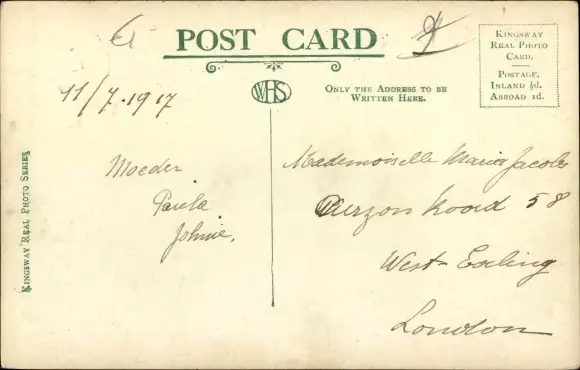 POST CARD
WHS
ONLY THE ADDRESS TO BE
WRITTEN HERE.
KINGSWAY
REAL PHOTO
CARD.
POSTAGE,
INLAND ½d.
ABROAD 1d.
KINGSWAY REAL PHOTO SERIES
11/7.1917
Moeder
Paula
Mademoiselle Maria Jacobs
Curzon Road 58
West-Ealing
London